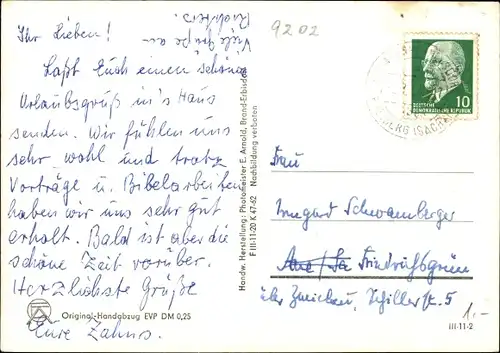 Ihr Lieben!
Laßt Euch einen schönen
Urlaubsgruß in's Haus
senden. Wir fühlen uns
sehr wohl und trotz
Vorträge u. Bibelarbeiten
haben wir uns sehr gut
erholt. Bald ist aber die
schöne Zeit vorüber.
Herzlichste Grüße
Eure Zahns.
Viele Grüße an
Original-Handabzug EVP DM 0,25
Handw. Herstellung: Photomeister E. Arnold, Brand-Erbisdorf
F III-11-20 K 47-62 Nachbildung verboten
9202
10
DEUTSCHE
DEMOKRATISCHE REPUBLIK
Frau
Irmgard Schwamberger
Friedrichsgrün
über Zwickau, Schillerstr. 5
1.-
III-11-2